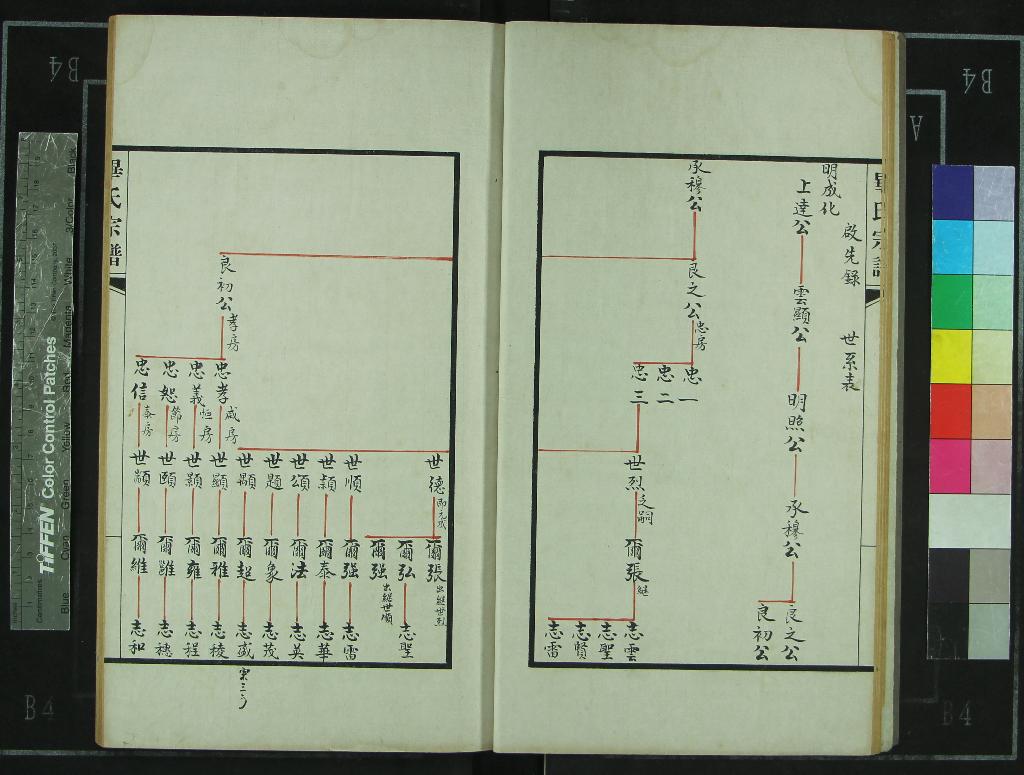 畢氏宗譜
啟先錄 世系表
明成化
上達公
雲顯公
明照公
承穆公
良之公
良初公
承穆公
良之公 忠房
忠一
忠二
忠三
世烈 之嗣
爾張 継
志雲
志聖
志賢
志雷
世德 即元成
爾張 出継世烈
爾弘
爾强 出継世順
志聖
世順
爾强
志雷
世頴
爾泰
志華
世頌
爾法
志英
世題
爾象
志茂
世顒
爾超
志盛
良初公 孝房
忠孝 咸房
世顯
爾雅
志稜
忠義 恒房
世顥
爾雍
志程
忠恕 節房
世頤
爾雖
志穗
忠信 泰房
世顓
爾維
志和
畢氏宗譜
B4
B4
B4
B4
A
TIFFEN Color Control Patches
Blue
Cyan
Green
Yellow
Red
Magenta
White
3/Color
Black
Centimetres